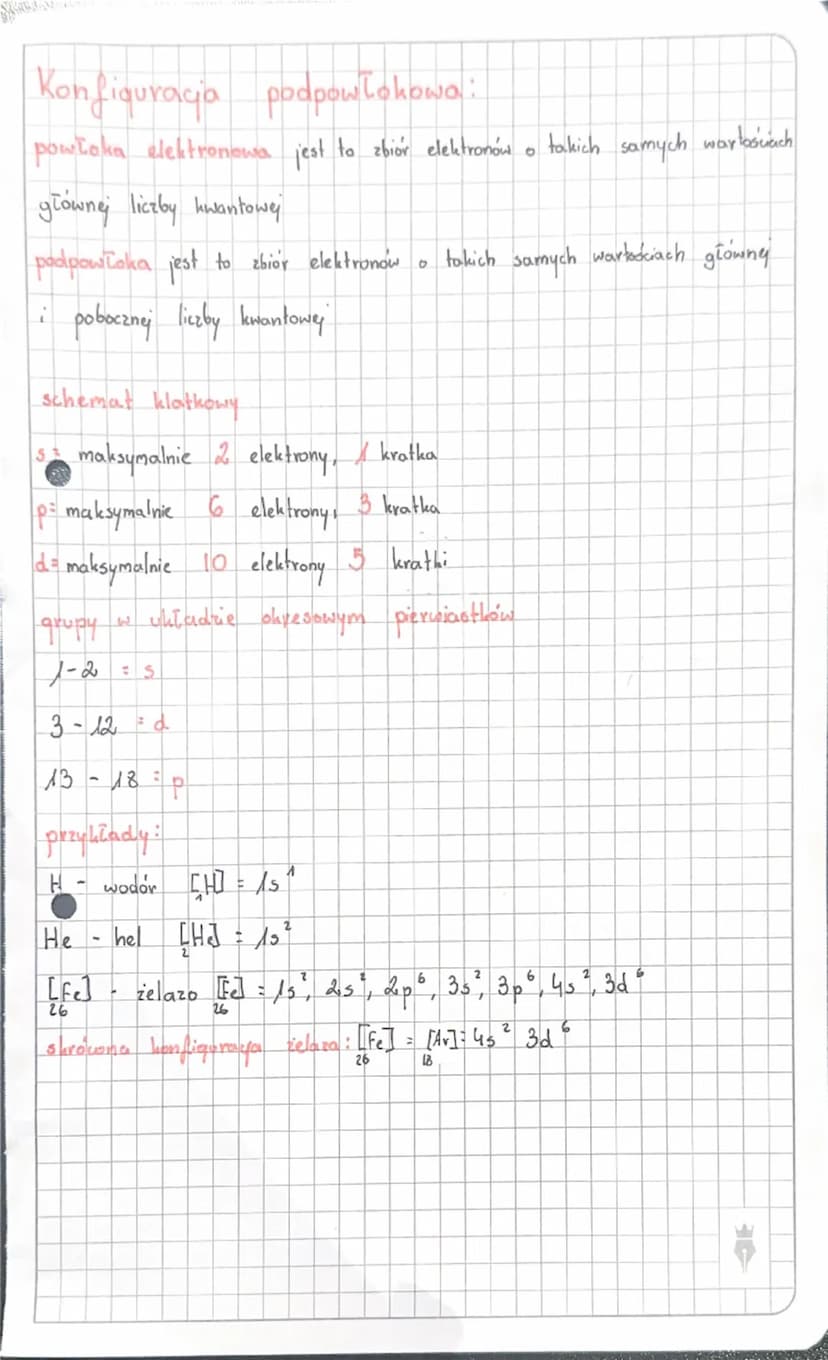 Konfiguracja podpowłokowa:
powłoka elektronowa jest to zbiór elektronów o takich samych wartościach
głównej liczby kwantowej
podpowłoka jest to zbiór elektronów o takich samych wartościach głównej
i pobocznej liczby kwantowej
schemat klatkowy
s= maksymalnie 2 elektrony, 1 kratka
p= maksymalnie 6 elektrony, 3 kratka
d= maksymalnie 10 elektrony 5 kratki
grupy w układzie okresowym pierwiastków
1-2 = s
3-12 = d
13-18 = p
przykłady:
H - wodór [₁H] = 1s¹
He - hel [₂He] = 1s²
[₂₆Fe] - żelazo [₂₆Fe] = 1s², 2s², 2p⁶, 3s², 3p⁶, 4s², 3d⁶
skrócona konfiguracja żelaza: [₂₆Fe] = [₁₈Ar]: 4s² 3d⁶